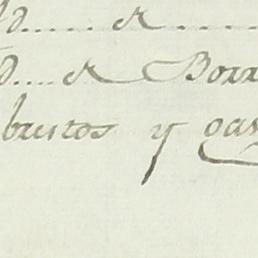 d..... de ....
d.... de Borr
bustos y gas